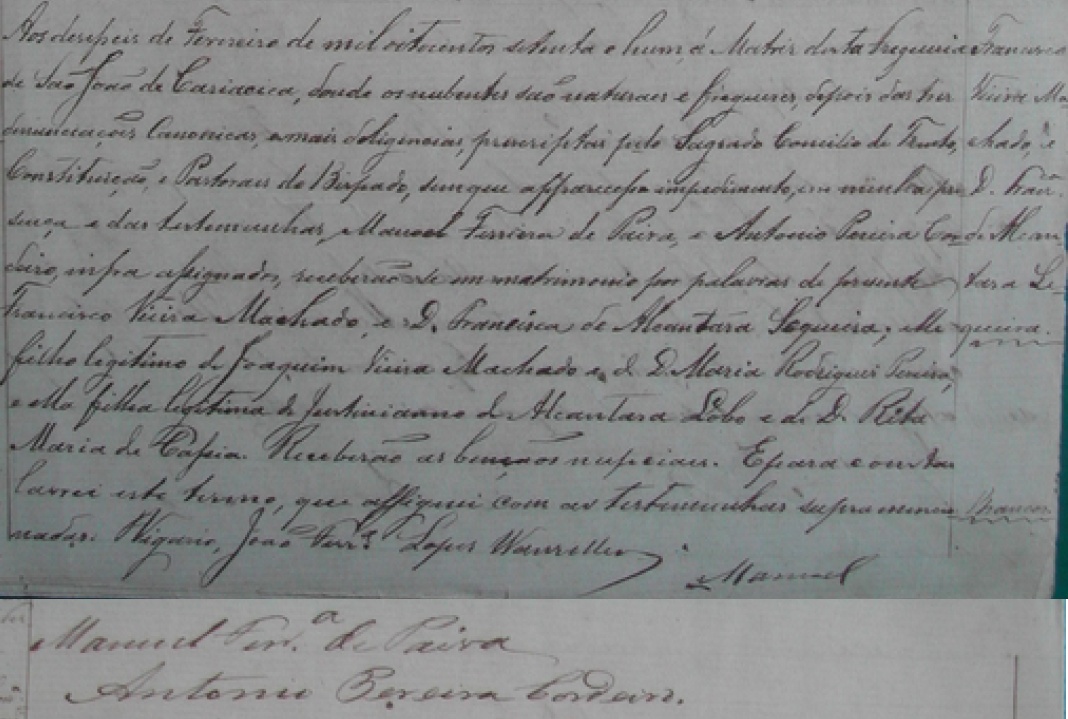 Aos deseseis de Fevereiro de mil oitocentos setenta e hum, á Matriz desta freguesia
de São João de Cariacica, donde os nubentes são naturaes e freguezes, depois das tres
denunciações Canonicas, e mais deligencias, prescriptas pelo Sagrado Concilio de Trento,
Constituição, e Pastoraes do Bispado, sem que apparecesse impedimento, em minha pre
sença e das testemunhas, Manoel Ferreira de Paiva, e Antonio Pereira Cor
deiro, infra assignados, receberão-se em matrimonio por palavras de presente
Francisco Vieira Machado, e D. Francisca de Alcantara Sequeira; elle
filho legitimo de Joaquim Vieira Machado e de D. Maria Rodrigues Pereira,
e ella filha legitima de Justinianno de Alcantara Lobo e de D. Rita
Maria de Cassia. Receberão as bençãos nupciaes. E para constar
lavrei este termo, que assignei com as testemunhas supra mencio
nadas. Vigario, João Ferrª Lopes Wanzeller
Manuel
Francisco
Vieira Ma
chado, e
D. Francª
de Alcan
tara Se-
queira.
Brancos
Manuel Ferr.ª de Paiva
Antonio Pereira Cordeiro.